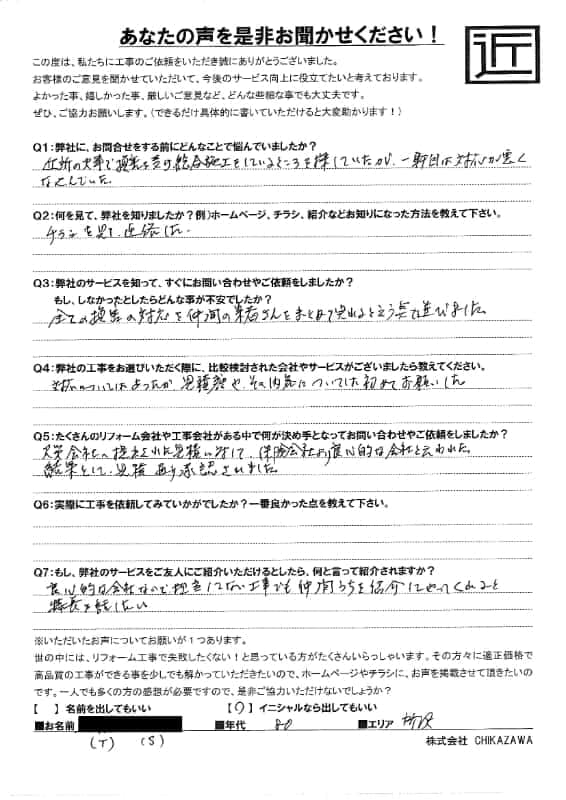 あなたの声を是非お聞かせください！
近
この度は、私たちに工事のご依頼をいただき誠にありがとうございました。
お客様のご意見を聞かせていただいて、今後のサービス向上に役立てたいと考えております。
よかった事、嬉しかった事、厳しいご意見など、どんな些細な事でも大丈夫です。
ぜひ、ご協力お願いします。（できるだけ具体的に書いていただけると大変助かります！）
Q1：弊社に、お問合せをする前にどんなことで悩んでいましたか？
近所の火事で損害を受け総合施工をしているところを探していたが、一軒目は対応が悪く
なやんでいた
Q2：何を見て、弊社を知りましたか？例）ホームページ、チラシ、紹介などお知りになった方法を教えて下さい。
チラシを見て連絡した
Q3：弊社のサービスを知って、すぐにお問い合わせやご依頼をしましたか？
もし、しなかったとしたらどんな事が不安でしたか？
全ての損害の対応を仲間の業者さんをまとめて来れると云う点で選びました
Q4：弊社の工事をお選びいただく際に、比較検討された会社やサービスがございましたら教えてください。
見積額や、その内容について初めてお願いした
Q5：たくさんのリフォーム会社や工事会社がある中で何が決め手となってお問い合わせやご依頼をしましたか？
火災会社へ提出された見積に対して、保険会社より良心的な会社と云われた
結果として、見積通り承認されました
Q6：実際に工事を依頼してみていかがでしたか？一番良かった点を教えて下さい。
Q7：もし、弊社のサービスをご友人にご紹介いただけるとしたら、何と言って紹介されますか？
良心的な会社なので担当してない工事でも仲間うちを紹介してやってくれると
特長を話したい
※いただいたお声についてお願いが１つあります。
世の中には、リフォーム工事で失敗したくない！と思っている方がたくさんいらっしゃいます。その方々に適正価格で
高品質の工事ができる事を少しでも解かっていただきたいので、ホームページやチラシに、お声を掲載させて頂きたいの
です。一人でも多くの方の感想が必要ですので、是非ご協力いただけないでしょうか？
【　】名前を出してもいい　【○】イニシャルなら出してもいい
■お名前　■年代　80　■エリア　所沢
（T）（S）　株式会社 CHIKAZAWA